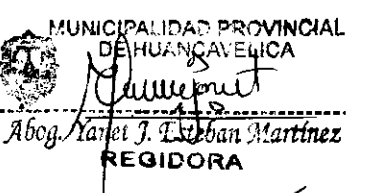 MUNICIPALIDAD PROVINCIAL
DE HUANCAVELICA
Abog. Yanet J. Esteban Martínez
REGIDORA